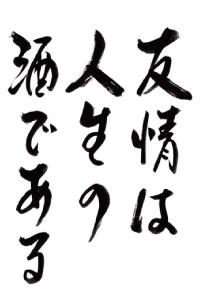 友情は
人生の
酒である